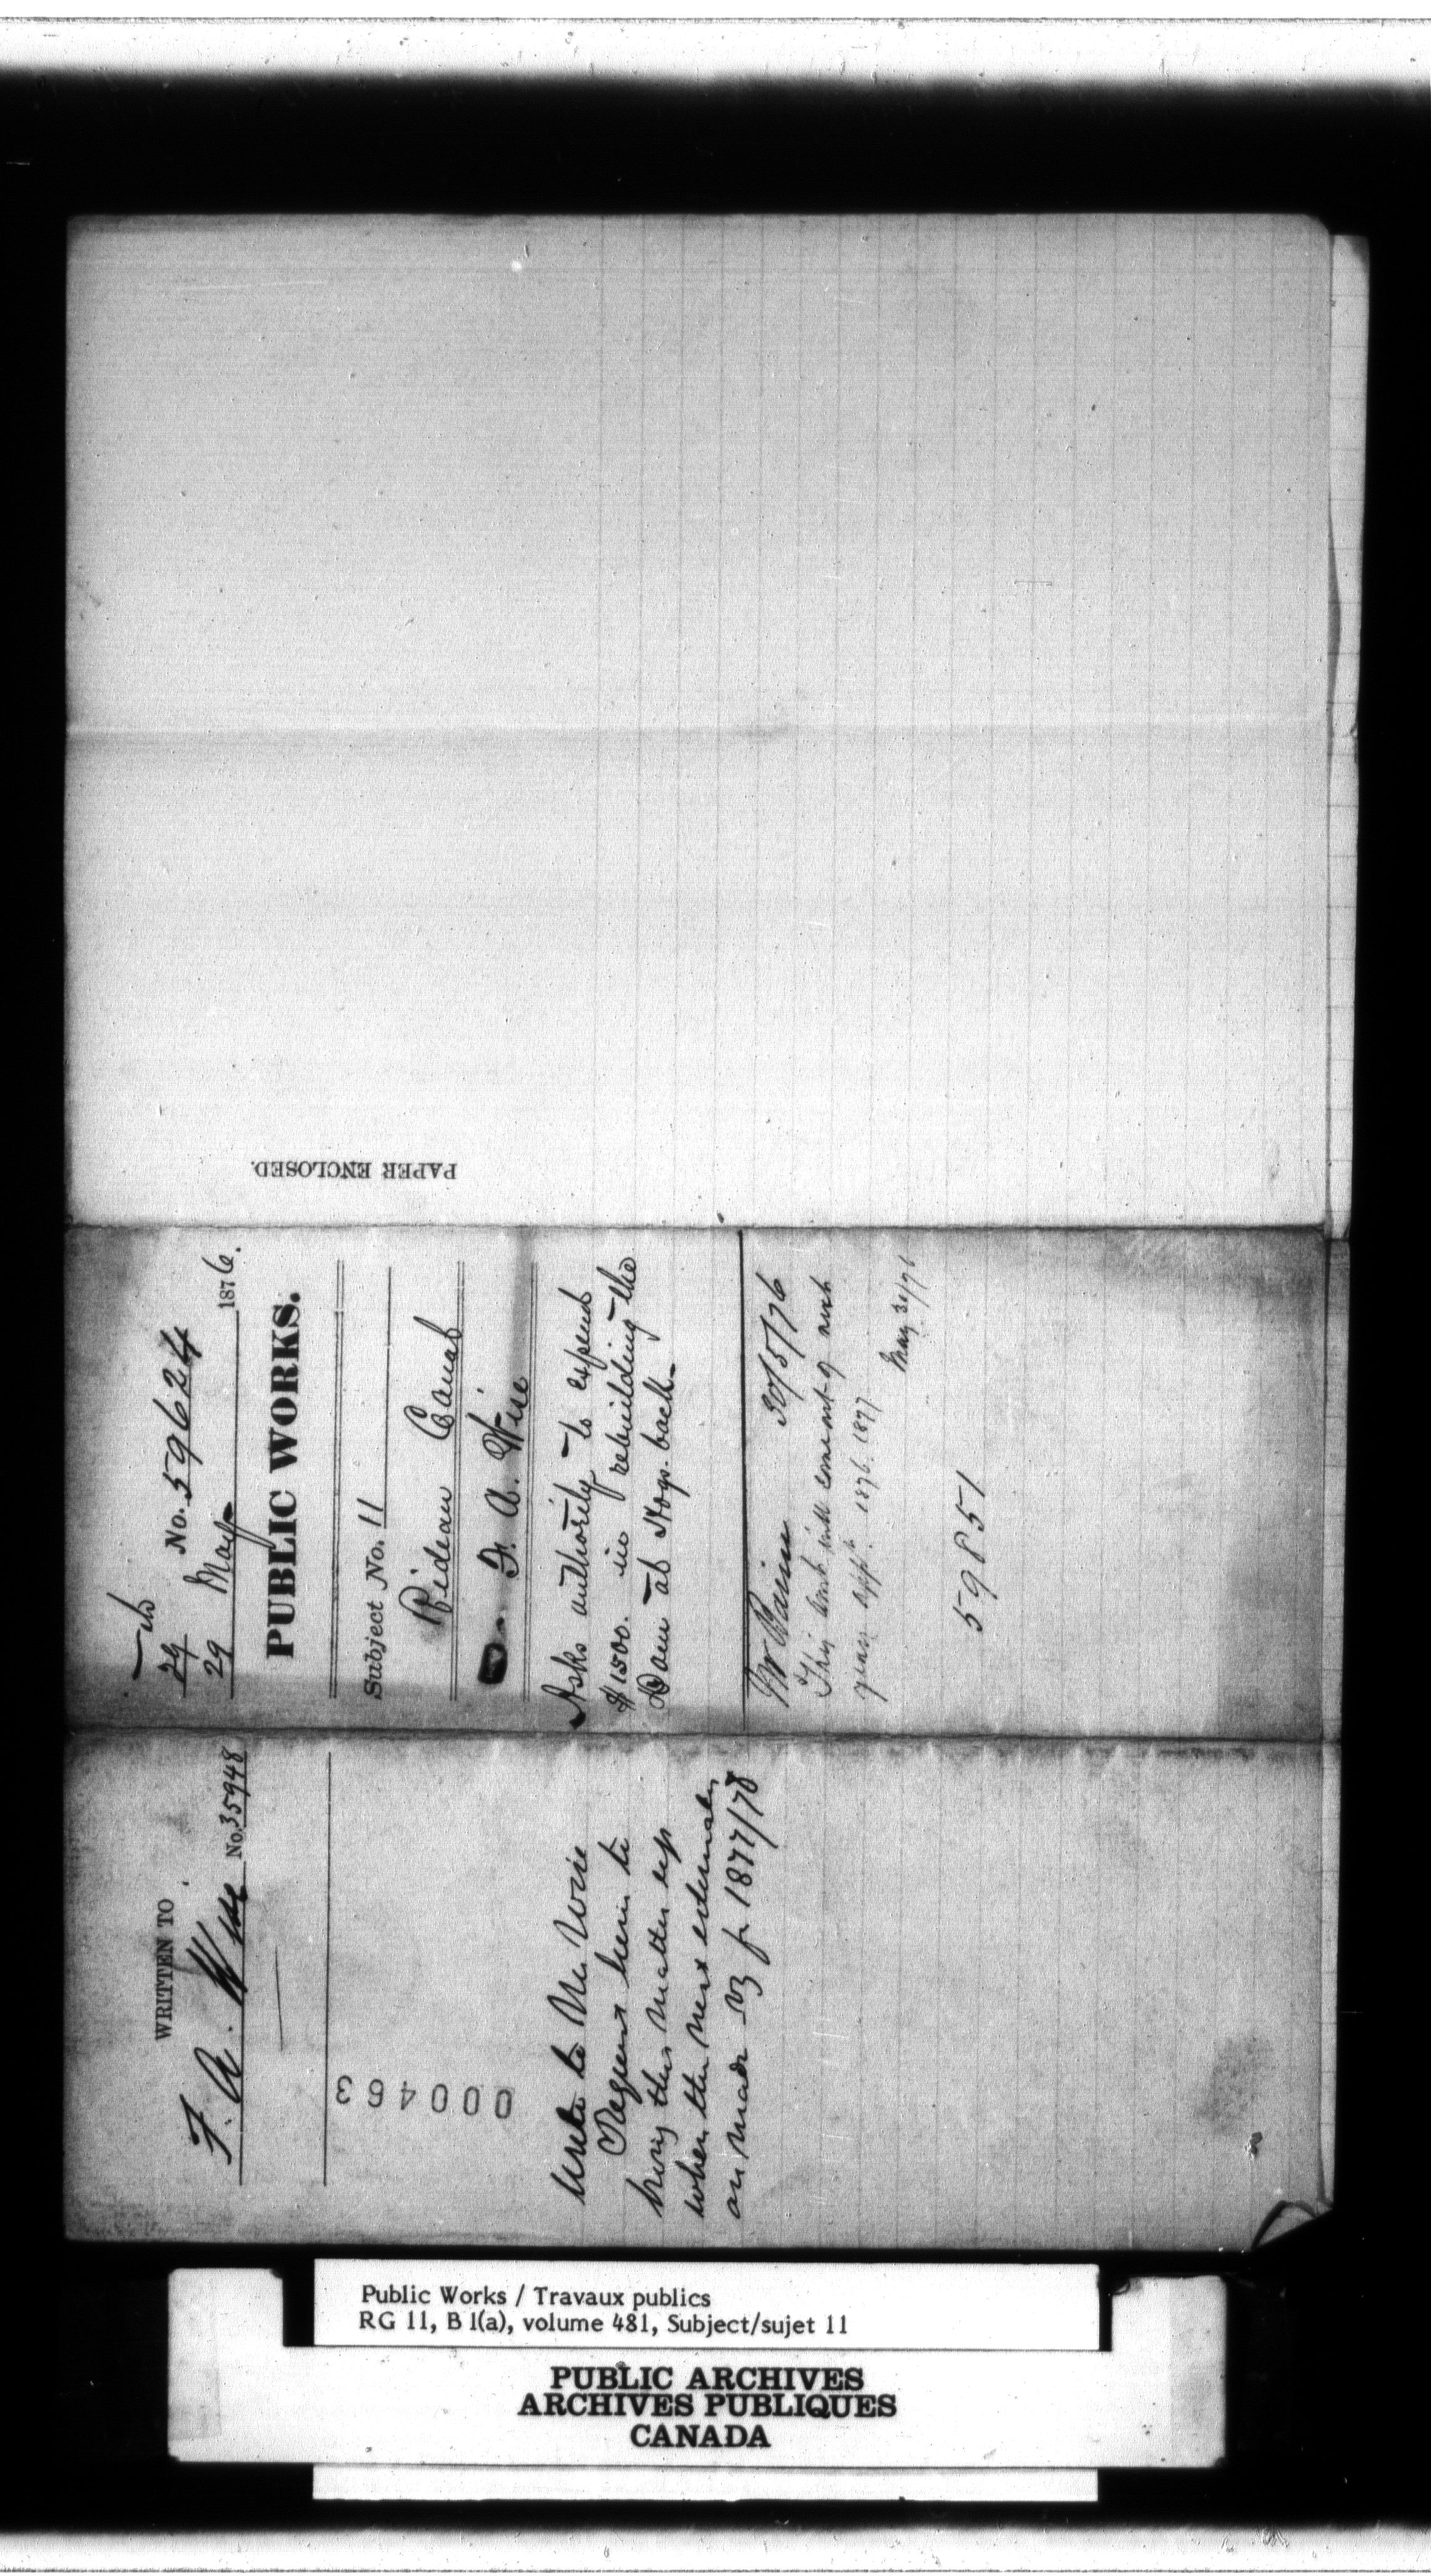 No. 59624
29
29 May 1876.
PUBLIC WORKS.
Subject No. 11
Rideau Canal
F. A. Wise
Asks authority to expend
$1500. in rebuilding the
Dam at Hogs-back-
Mr Baine 30/5/76
This work will come out of next
years app.n 1876.1877
May 30/76
59851
WRITTEN TO
F. A. Wise No. 35948
000463
Write to Mr Wise
Request him to
bring this matter up
when the next estimates
are made viz for 1877/78
PAPER ENCLOSED.
Public Works / Travaux publics
RG 11, B 1(a), volume 481, Subject/sujet 11
PUBLIC ARCHIVES
ARCHIVES PUBLIQUES
CANADA